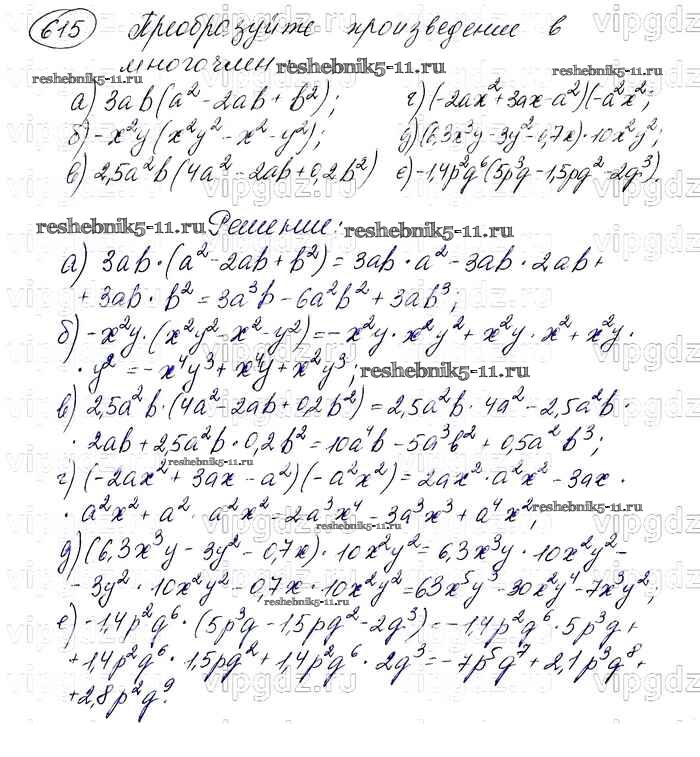 615 Преобразуйте произведение в
многочлен
reshebnik5-11.ru reshebnik5-11.ru
а) 3ab(a²-2ab+b²); г) (-2ax²+3ax-a²)(-a²x²;
б) -x²y(x²y²-x²-y²); д) (6,3x³y-3y²-0,7x)·10x²y²;
в) 2,5a²b(4a²-2ab+0,2b²) е) -1,4p²q⁶(5p³q-1,5pq²-2q³).
reshebnik5-11.ru Решение: reshebnik5-11.ru
а) 3ab·(a²-2ab+b²)=3ab·a²-3ab·2ab+
+3ab·b²=3a³b-6a²b²+3ab³;
б) -x²y·(x²y²-x²-y²)=-x²y·x²y²+x²y·x²+x²y·
·y²=-x⁴y³+x⁴y+x²y³; reshebnik5-11.ru
в) 2,5a²b·(4a²-2ab+0,2b²)=2,5a²b·4a²-2,5a²b·
·2ab+2,5a²b·0,2b²=10a⁴b-5a³b²+0,5a²b³;
reshebnik5-11.ru
г) (-2ax²+3ax-a²)(-a²x²)=2ax²·a²x²-3ax·
reshebnik5-11.ru
·a²x²+a²·a²x²=2a³x⁴-3a³x³+a⁴x²;
reshebnik5-11.ru
д) (6,3x³y-3y²-0,7x)·10x²y²=6,3x³y·10x²y²-
-3y²·10x²y²-0,7x·10x²y²=63x⁵y³-30x²y⁴-7x³y²;
reshebnik5-11.ru
е) -1,4p²q⁶·(5p³q-1,5pq²-2q³)=-1,4p²q⁶·5p³q+
+1,4p²q⁶·1,5pq²+1,4p²q⁶·2q³=-7p⁵q⁷+2,1p³q⁸+
+2,8p²q⁹.